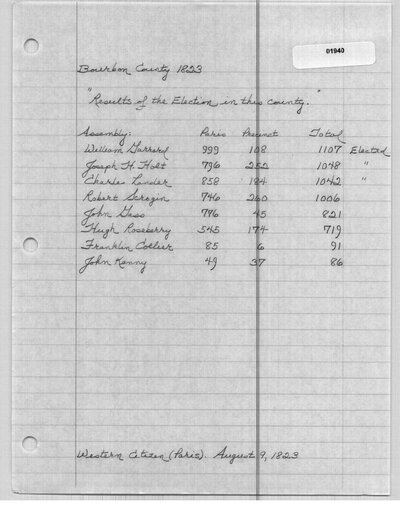 01940
Bourbon County 1823
"Results of the Election in this County."
Assembly: Paris Precinct Total
William Garrard 999 108 1107 Elected
Joseph H. Holt 796 252 1048 "
Charles Lander 858 184 1042 "
Robert Scrogin 746 260 1006
John Gass 776 45 821
Hugh Roseberry 545 174 719
Franklin Collier 85 6 91
John Kenny 49 37 86
Western Citizen (Paris). August 9, 1823